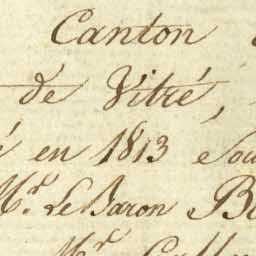 Canton
de Vitré,
en 1813 sou
Mr. Le Baron B
Mr